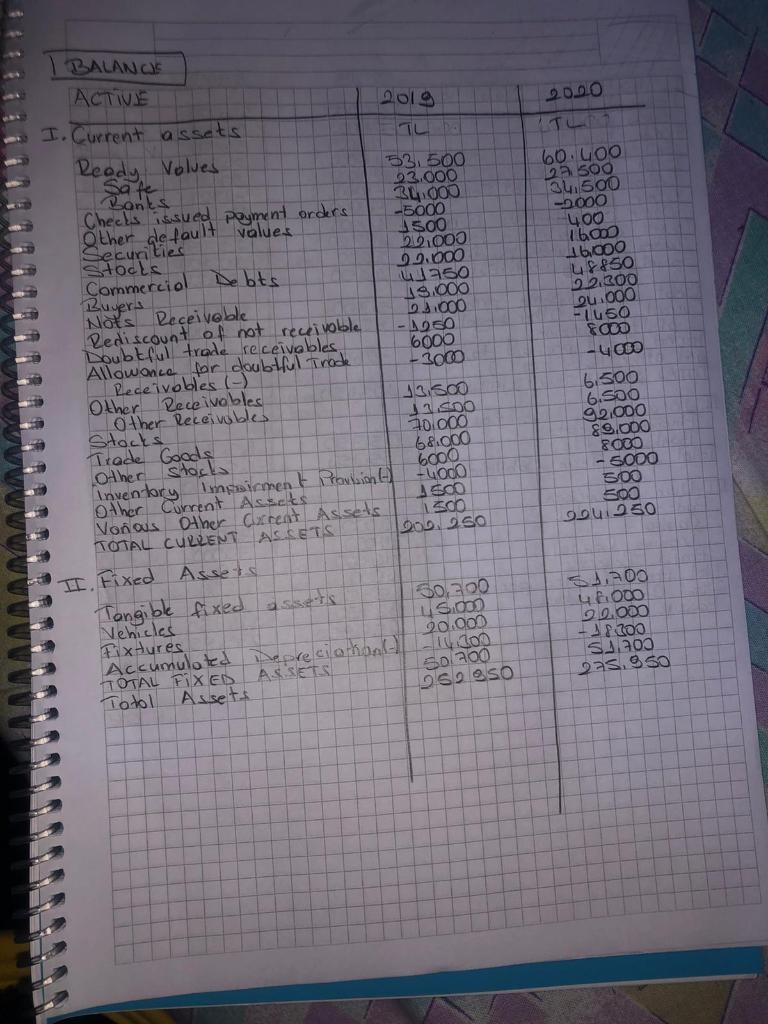 1 BALANCE
ACTIVE 2019 2020
I. Current assets TL TL
Ready Values 53,500 60.400
Safe 23.000 27,500
Banks 34,000 34,500
Checks issued payment orders -5000 -2000
Other default values 1500 400
Securities 22,000 16000
Stocks 22.000 16,000
Commercial Debts 41750 48850
Buyers 19,000 22.300
Nots Receivable 21.000 24.000
Rediscount of not receivable -1250 -1450
Doubtful trade receivables 6000 8000
Allowance for doubtful Trade -3000 -4000
Receivables (-)
Other Receivables 13,500 6,500
Other Receivables 13,500 6.500
Stocks 70,000 92,000
Trade Goods 68,000 89,000
Other Stocks 6000 8000
Inventory Impairment Provision(-) -4000 -5000
Other Current Assets 1500 500
Various Other Current Assets 1500 500
TOTAL CURRENT ASSETS 202.250 224,250
II. Fixed Assets
Tangible fixed assets 50,700 51,700
Vehicles 45,000 48,000
Fixtures 20.000 22,000
Accumulated Depreciation(-) -14,300 -18,300
TOTAL FIXED ASSETS 50,700 51,700
Total Assets 252 950 275,950